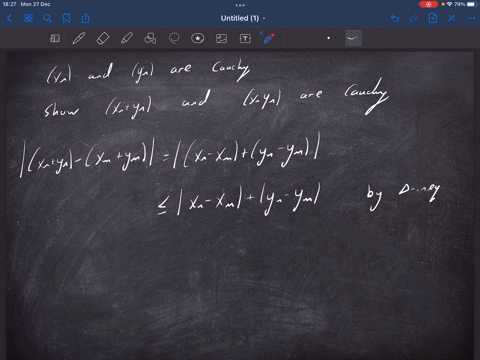 18:27 Mon 27 Dec 79%
Untitled (1)
(xₙ) and (yₙ) are Cauchy
show (xₙ+yₙ) and (xₙyₙ) are Cauchy
|(xₙ+yₙ)-(xₘ+yₘ)| = |(xₙ-xₘ)+(yₙ-yₘ)|
≤ |xₙ-xₘ|+|yₙ-yₘ| by Δ-ineq